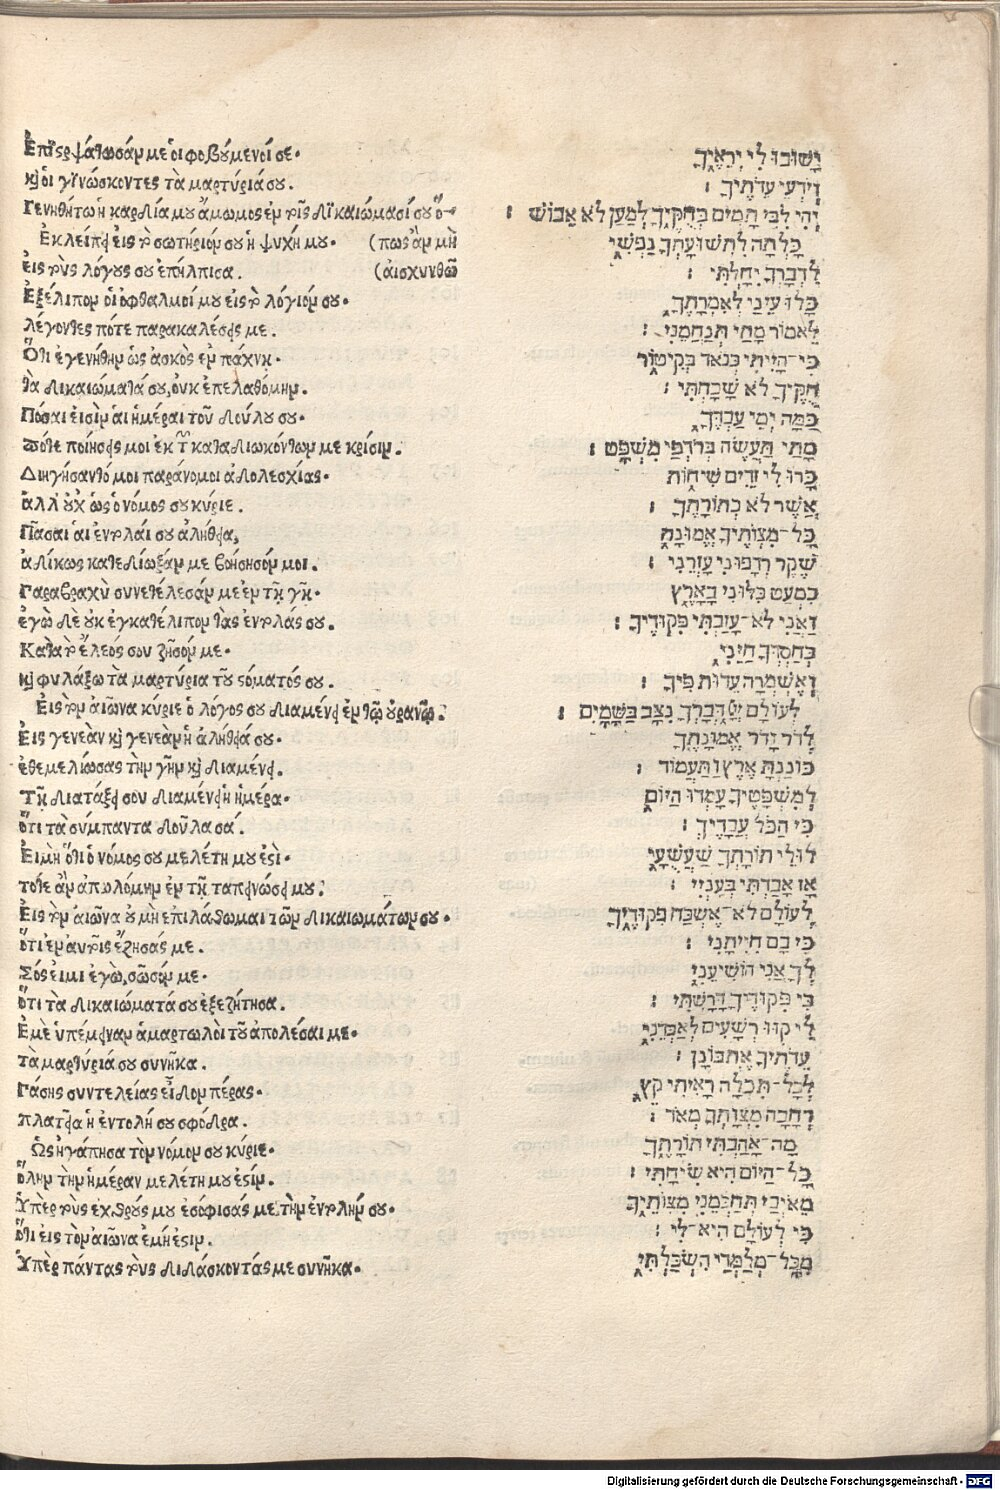 Ἐπιστρεψάτωσάν με ὁι φοβούμενόι σε·
κὶ ὁι γινώσκοντες τὰ μαρτύριά σου.
Γενηθήτω ἡ καρδία μου ἄμωμος ἐν τοῖς δικαιώμασί σου ὅ-
Ἐκλείπει εἰς τὸ σωτήριόν σου ἡ ψυχή μου· (πως ἂν μὴ
εἰς τοὺς λόγους σου ἐπήλπισα. (ἀισχυνθῶ
Ἐξέλιπον ὁι ὀφθαλμοί μου εἰς τὸ λόγιόν σου·
λέγοντες πότε παρακαλέσεις με.
Ὅτι ἐγενήθην ὡς ἀσκὸς ἐν πάχνῃ·
τὰ δικαιώματά σου, ὀυκ ἐπελαθόμην.
Πόσαι ἐισὶν ἁι ἡμέραι τοῦ δούλου σου·
πότε ποίησεις μοι ἐκ τῶν καταδιωκόντων με κρίσιν.
Διηγήσαντό μοι παράνομοι ἀδολεσχίας·
ἀλλ' οὐχ ὡς ὁ νόμος σου κύριε.
Πᾶσαι ἁι ἐντολάι σου ἀλήθεια,
ἀδίκως κατεδίωξάν με βοήσησόν μοι.
Γαραβραχὺ συνετέλεσάν με ἐν τῇ γῇ·
ἐγὼ δὲ οὐκ ἐγκατέλιπον τὰς ἐντολάς σου.
Κατὰ τὸ ἔλεός σου ζῆσόν με·
κὶ φυλάξω τὰ μαρτύρια τοῦ στόματός σου.
Εἰς τὸν ἀιῶνα κύριε ὁ λόγος σου διαμένει ἐν τῷ οὐρανῷ.
Εἰς γενεὰν κὶ γενεὰν ἡ ἀλήθειά σου·
ἐθεμελίωσας τὴν γῆν κὶ διαμένει.
Τῇ διατάξει σου διαμένει ἡ ἡμέρα·
ὅτι τὰ σύμπαντα δοῦλα σά.
Εἰ μὴ ὅτι ὁ νόμος σου μελέτη μου ἐστὶ·
τότε ἂν ἀπωλόμην ἐν τῇ ταπεινώσει μου.
Εἰς τὸν ἀιῶνα οὐ μὴ ἐπιλάθωμαι τῶν δικαιωμάτων σου·
ὅτι ἐν αὐτοῖς ἔζησάς με.
Σός ἐιμι ἐγὼ, σῶσόν με·
ὅτι τὰ δικαιώματά σου ἐξεζήτησα.
Ἐμὲ ὑπέμειναν ἁμαρτωλοὶ τοῦ ἀπολέσαι με·
τὰ μαρτύριά σου συνῆκα.
Γάσης συντελείας εἶδον πέρας·
πλατεῖα ἡ ἐντολή σου σφόδρα.
Ὡς ἠγάπησα τὸν νόμον σου κύριε·
ὅλην τὴν ἡμέραν μελέτη μου ἐστίν.
Ὑπὲρ τοὺς ἐχθρούς μου ἐσόφισάς με τὴν ἐντολήν σου·
ὅτι εἰς τὸν ἀιῶνα ἐμή ἐστιν.
Ὑπὲρ παντας τοὺς διδάσκοντάς με συνῆκα·
יָשׁוּבוּ לִי יְרֵאֶיךָ
וְיֹדְעֵי עֵדֹתֶיךָ :
יְהִי לִבִּי תָמִים בְּחֻקֶּיךָ לְמַעַן לֹא אֵבוֹשׁ :
כָּלְתָה לִתְשׁוּעָתְךָ נַפְשִׁי
לִדְבָרְךָ יִחָלְתִּי :
כָּלוּ עֵינַי לְאִמְרָתֶךָ
לֵאמוֹר מָתַי תְּנַחֲמֵנִי :
כִּי־הָיִיתִי כְּנֹאד בְּקִיטוֹר
חֻקֶּיךָ לֹא שָׁכָחְתִּי :
כַּמָּה יְמֵי עַבְדֶּךָ
מָתַי תַּעֲשֶׂה בְרֹדְפַי מִשְׁפָּט :
כָּרוּ לִי זֵדִים שִׁיחוֹת
אֲשֶׁר לֹא כְתוֹרָתֶךָ :
כָּל־מִצְוֹתֶיךָ אֱמוּנָה
שֶׁקֶר רְדָפוּנִי עָזְרֵנִי :
כִּמְעַט כִּלּוּנִי בָאָרֶץ
וַאֲנִי לֹא־עָזַבְתִּי פִּקּוּדֶיךָ :
כְּחַסְדְּךָ חַיֵּנִי
וְאֶשְׁמְרָה עֵדוּת פִּיךָ :
לְעוֹלָם יְיָ דְּבָרְךָ נִצָּב בַּשָּׁמָיִם :
לְדֹר וָדֹר אֱמוּנָתֶךָ
כּוֹנַנְתָּ אֶרֶץ וַתַּעֲמוֹד :
לְמִשְׁפָּטֶיךָ עָמְדוּ הַיּוֹם
כִּי הַכֹּל עֲבָדֶיךָ :
לוּלֵי תוֹרָתְךָ שַׁעֲשֻׁעָי
אָז אָבַדְתִּי בְעָנְיִי :
לְעוֹלָם לֹא־אֶשְׁכַּח פִּקּוּדֶיךָ
כִּי בָם חִיִּיתָנִי :
לְךָ אֲנִי הוֹשִׁיעֵנִי
כִּי פִקּוּדֶיךָ דָרָשְׁתִּי :
לִי קִוּוּ רְשָׁעִים לְאַבְּדֵנִי
עֵדֹתֶיךָ אֶתְבּוֹנָן :
לְכָל־תִּכְלָה רָאִיתִי קֵץ
רְחָבָה מִצְוָתְךָ מְאֹד :
מָה־אָהַבְתִּי תוֹרָתֶךָ
כָּל־הַיּוֹם הִיא שִׂיחָתִי :
מֵאֹיְבַי תְּחַכְּמֵנִי מִצְוֹתֶיךָ
כִּי לְעוֹלָם הִיא־לִי :
מִכָּל־מְלַמְּדַי הִשְׂכַּלְתִּי
Digitalisierung gefördert durch die Deutsche Forschungsgemeinschaft - DFG